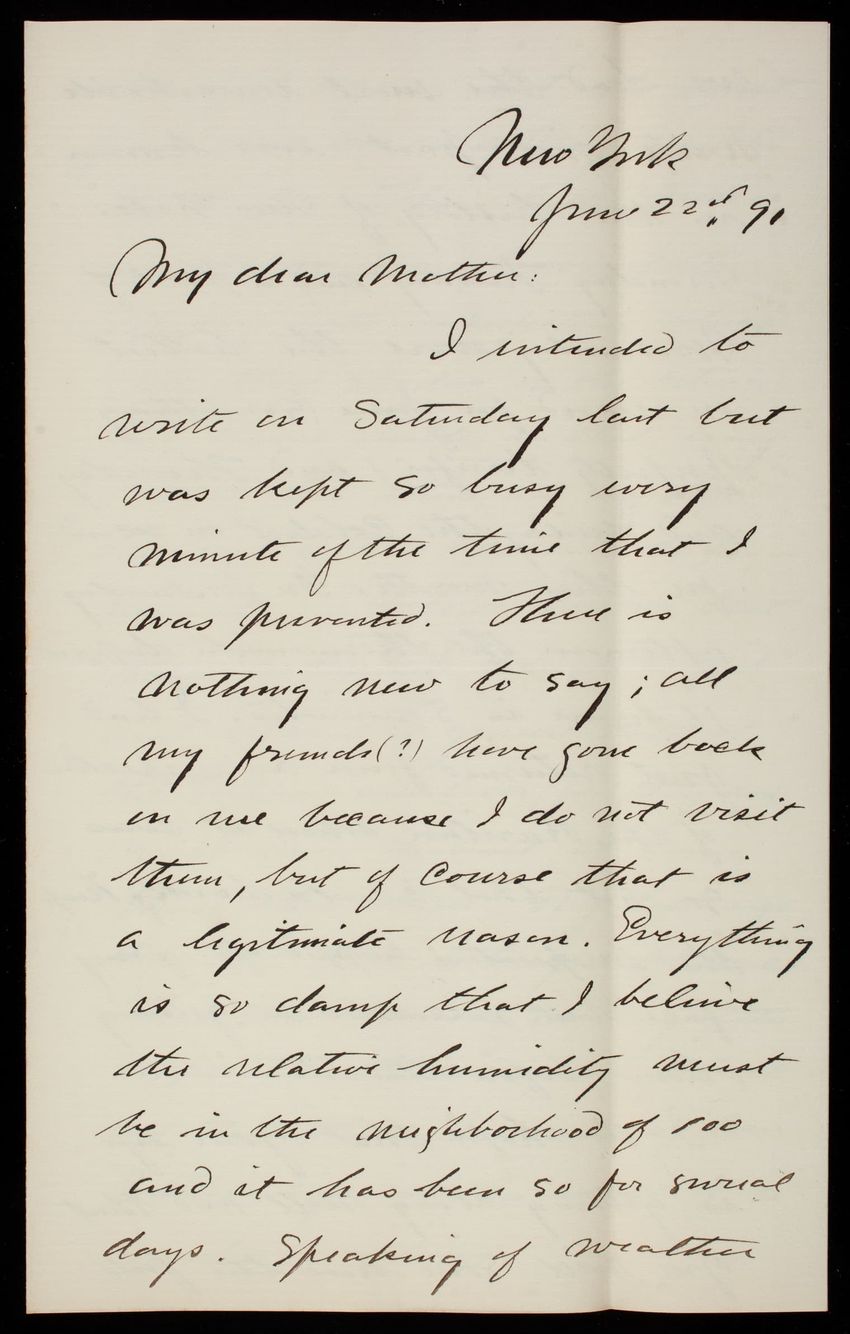 New York
June 22nd, 91
My dear Mother:
I intended to
write on Saturday last but
was kept so busy every
minute of the time that I
was prevented. There is
nothing new to say; all
my friends(?) have gone back
on me because I do not visit
them, but of course that is
a legitimate reason. Everything
is so damp that I believe
the relative humidity must
be in the neighborhood of 100
and it has been so for several
days. Speaking of weather